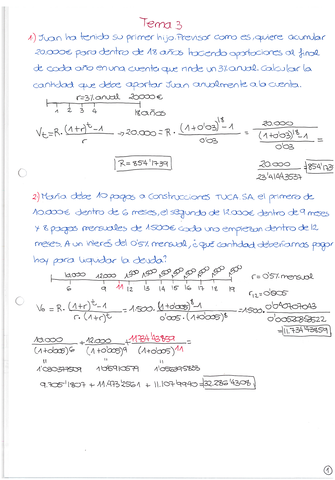 Tema 3
1) Juan ha tenido su primer hijo. Previsor como es, quiere acumular
20.000€ para dentro de 18 años haciendo aportaciones al final
de cada año en una cuenta que rinde un 3% anual. Calcular la
cantidad que debe aportar Juan anualmente a la cuenta.
r=3% anual 20000€
1 2 3 4 18 años
Vt=R·(1+r)^t-1/r → 20.000=R·(1+0'03)^18-1/0'03 = 20.000/((1+0'03)^18-1/0'03)
R=854'1739 20.000/23'41443537 =
2) María debe 10 pagos a Construcciones TUCA.SA. el primero de
10.000€ dentro de 6 meses, el segundo de 12.000€ dentro de 9 meses
y 8 pagos mensuales de 1500€ cada uno empiezan dentro de 12
meses. A un interés del 0'5% mensual, ¿qué cantidad deberíamos pagar
hoy para liquidar la deuda?
10.000 12.000 1.500 1.500 1.500 1.500 1.500 1.500 1.500 1.500
6 9 11 12 13 14 15 16 17 18 19
r=0'5% mensual
r12=0'005
V0=R·(1+r)^t-1/r·(1+r)^t = 1500·(1+0'005)^8-1/0'005·(1+0'005)^8 = 1500·0'040707043
= 11.734'43859
10.000/(1+0'005)^6 + 12.000/(1+0'005)^9 + 11.734'43859/(1+0'005)^11 =
9.705'1807 + 11.473'2561 + 11.107'9940 = 32.286'4308
1